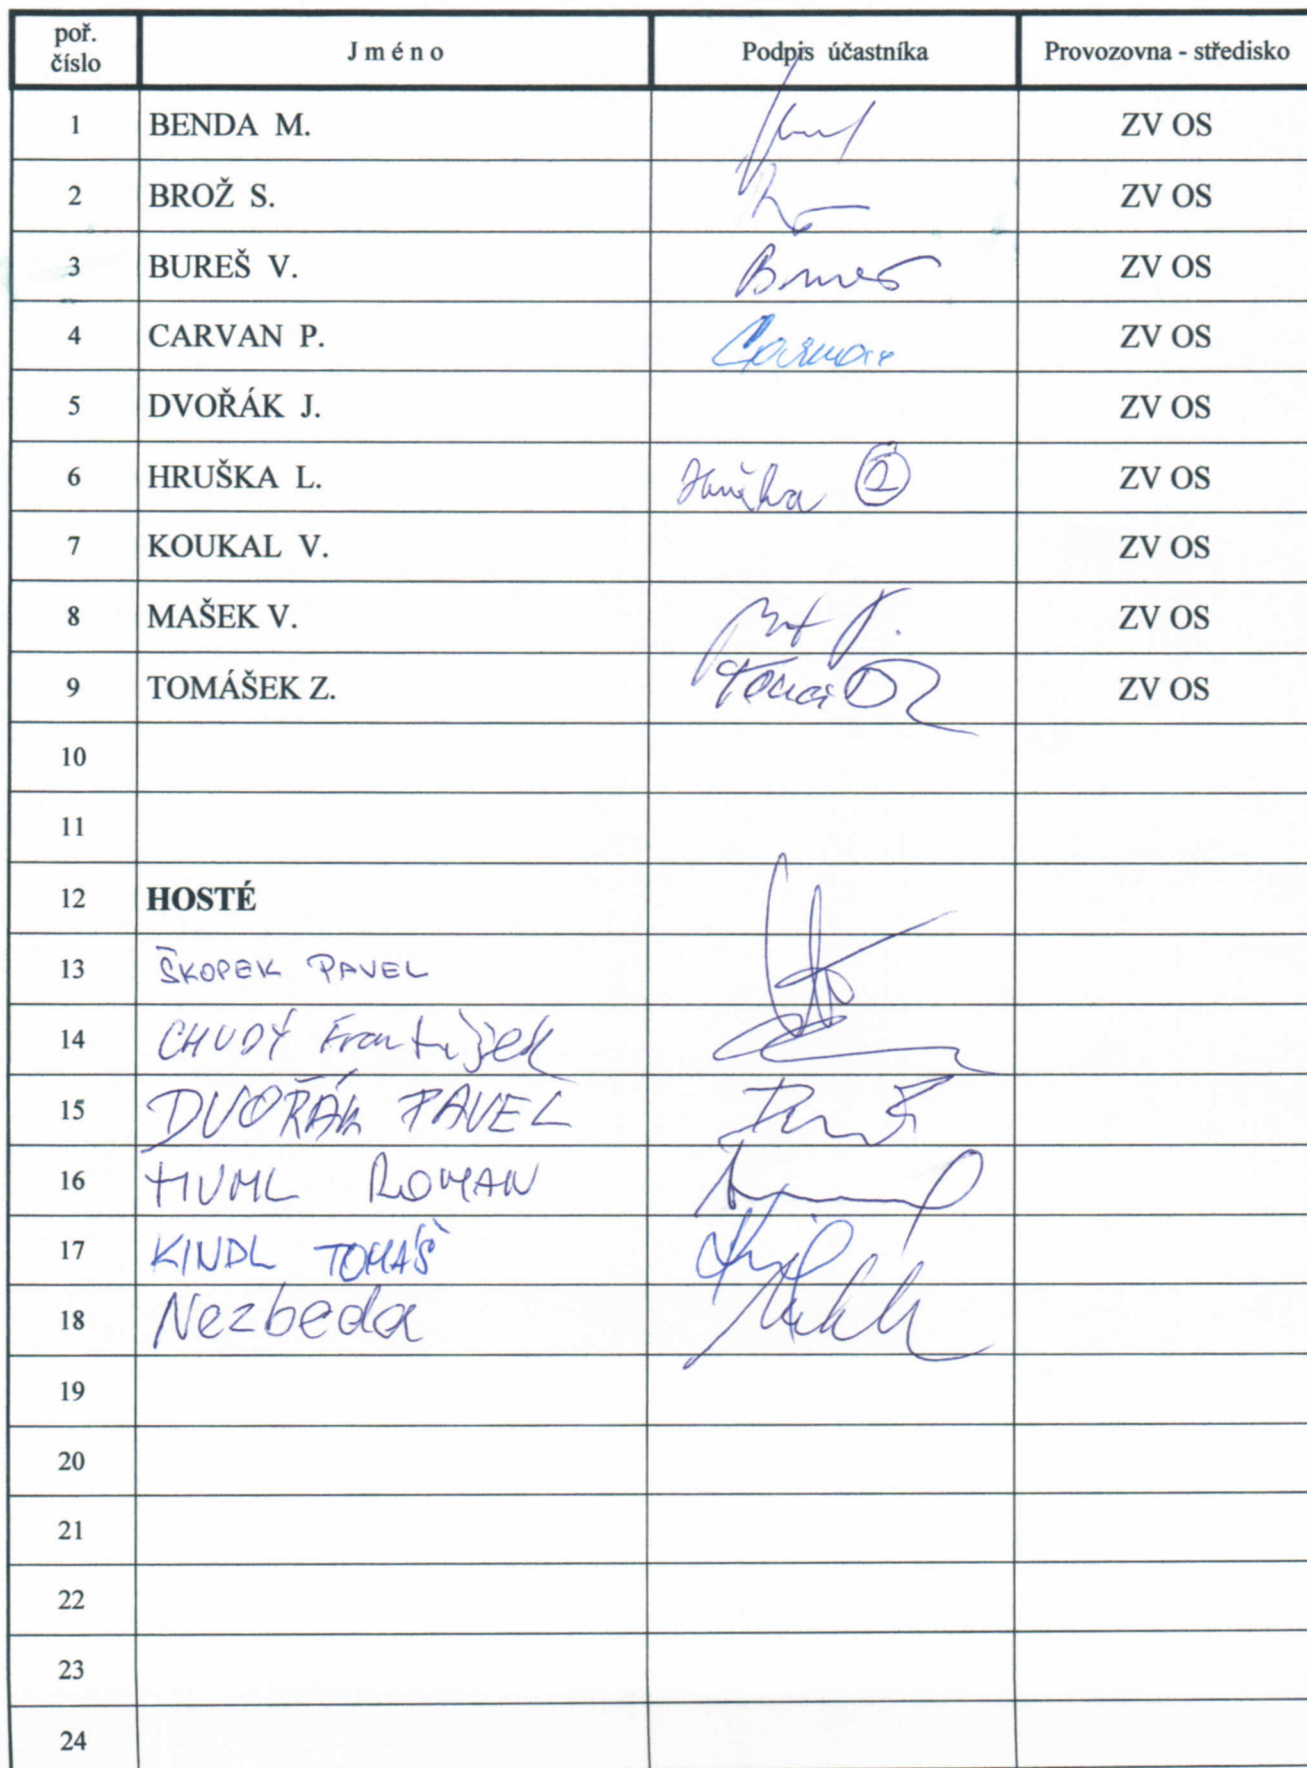 poř. číslo J m é n o Podpis účastníka Provozovna - středisko
1 BENDA M. ZV OS
2 BROŽ S. ZV OS
3 BUREŠ V. Bureš ZV OS
4 CARVAN P. Carvan ZV OS
5 DVOŘÁK J. ZV OS
6 HRUŠKA L. Hruška 2 ZV OS
7 KOUKAL V. ZV OS
8 MAŠEK V. ZV OS
9 TOMÁŠEK Z. ZV OS
10
11
12 HOSTÉ
13 ŠKOPEK PAVEL
14 CHUDÝ František
15 DVOŘÁK PAVEL
16 HUML ROMAN
17 KINDL TOMÁŠ
18 Nezbeda
19
20
21
22
23
24